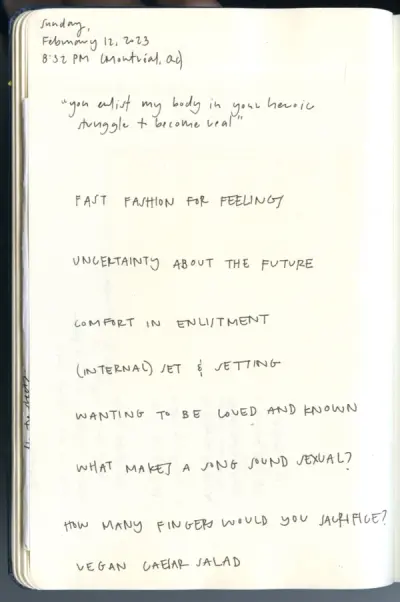 Sunday,
February 12, 2023
8:32 PM (Montreal, QC)
"you enlist my body in your heroic
struggle + become real"
FAST FASHION FOR FEELINGS
UNCERTAINTY ABOUT THE FUTURE
COMFORT IN ENLISTMENT
(INTERNAL) SET & SETTING
WANTING TO BE LOVED AND KNOWN
WHAT MAKES A SONG SOUND SEXUAL?
HOW MANY FINGERS WOULD YOU SACRIFICE?
VEGAN CAESAR SALAD